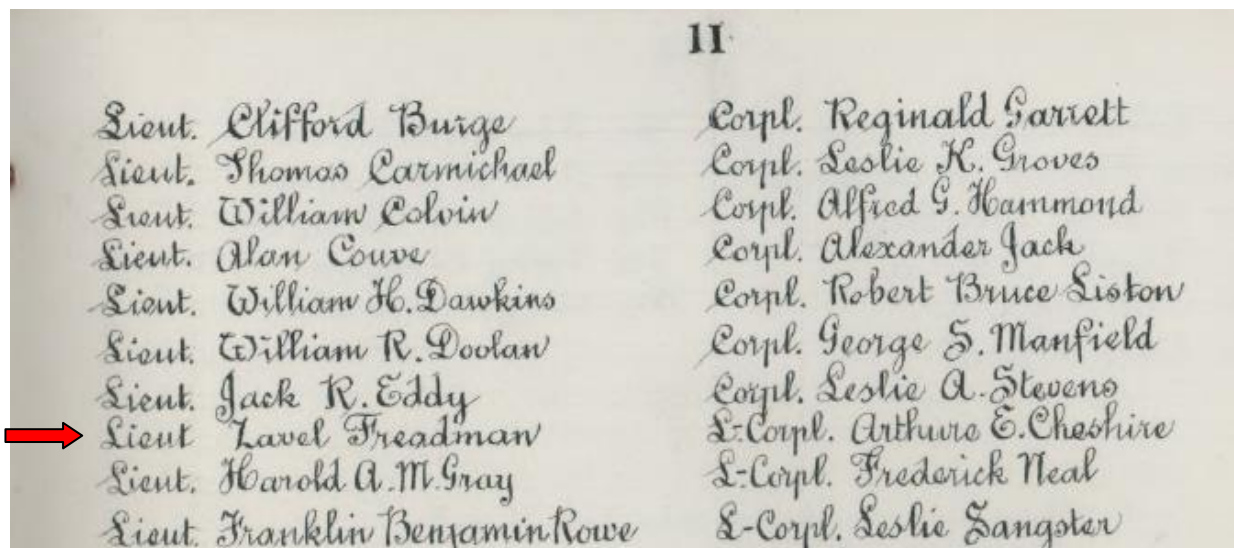 11
Lieut. Clifford Burge
Lieut. Thomas Carmichael
Lieut. William Colvin
Lieut. Alan Couve
Lieut. William H. Dawkins
Lieut. William R. Doolan
Lieut. Jack R. Eddy
Lieut Zavel Freadman
Lieut. Harold A. M. Gray
Lieut. Franklin Benjamin Rowe
Corpl. Reginald Garrett
Corpl. Leslie K. Groves
Corpl. Alfred G. Hammond
Corpl. Alexander Jack
Corpl. Robert Bruce Liston
Corpl. George S. Manfield
Corpl. Leslie A. Stevens
L-Corpl. Arthure E. Cheshire
L-Corpl. Frederick Neal
L-Corpl. Leslie Sangster